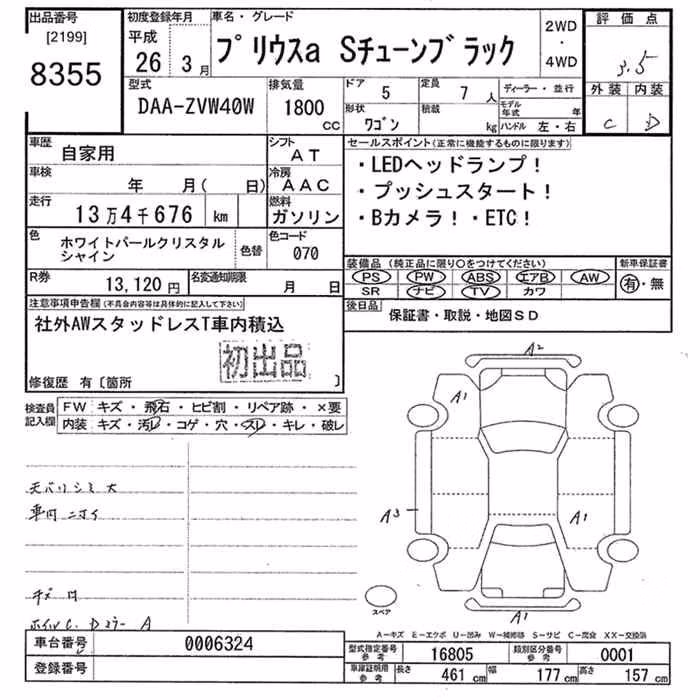 出品番号
[2199]
8355
初度登録年月
平成
26 3月
車名・グレード
プリウスa Sチューンブラック
2WD
・
4WD
評価点
3.5
外装 内装
C D
型式
DAA-ZVW40W
排気量
1800
cc
ドア 5
定員 7 人
形状 ワゴン
積載 kg
ディーラー・並行
モデル年式 年
ハンドル 左・右
車歴 自家用
シフト AT
車検 年 月( 日)
冷房 AAC
走行 13万4千676 km
燃料 ガソリン
色 ホワイトパールクリスタル
シャイン
色替
色コード 070
R券 13,120円
名変通知期限 月 日
セールスポイント(正常に機能するものに限ります)
・LEDヘッドランプ!
・プッシュスタート!
・Bカメラ!・ETC!
装備品(純正品に限り○をつけてください)
PS PW ABS エアB AW
SR ナビ TV カワ
新車保証書
有・無
後日品
保証書・取説・地図SD
注意事項申告欄(不具合内容等は具体的に記入して下さい)
社外AWスタッドレスT車内積込
初出品
修復歴 有〔箇所 〕
検査員
記入欄
FW キズ・飛石・ヒビ割・リペア跡・×要
内装 キズ・汚レ・コゲ・穴・スレ・キレ・破レ
天バリシミ大
車内ニオイ
ホイルC.
A2
A1
A3
A1
A1
スペア
A−キズ E−エクボ U−凹み W−補修跡 S−サビ C−腐食 XX−交換済
車台番号 0006324
登録番号
型式指定番号
参考
16805
類別区分番号
参考
0001
車庫証明用
参考
長さ 461 cm 幅 177 cm 高さ 157 cm